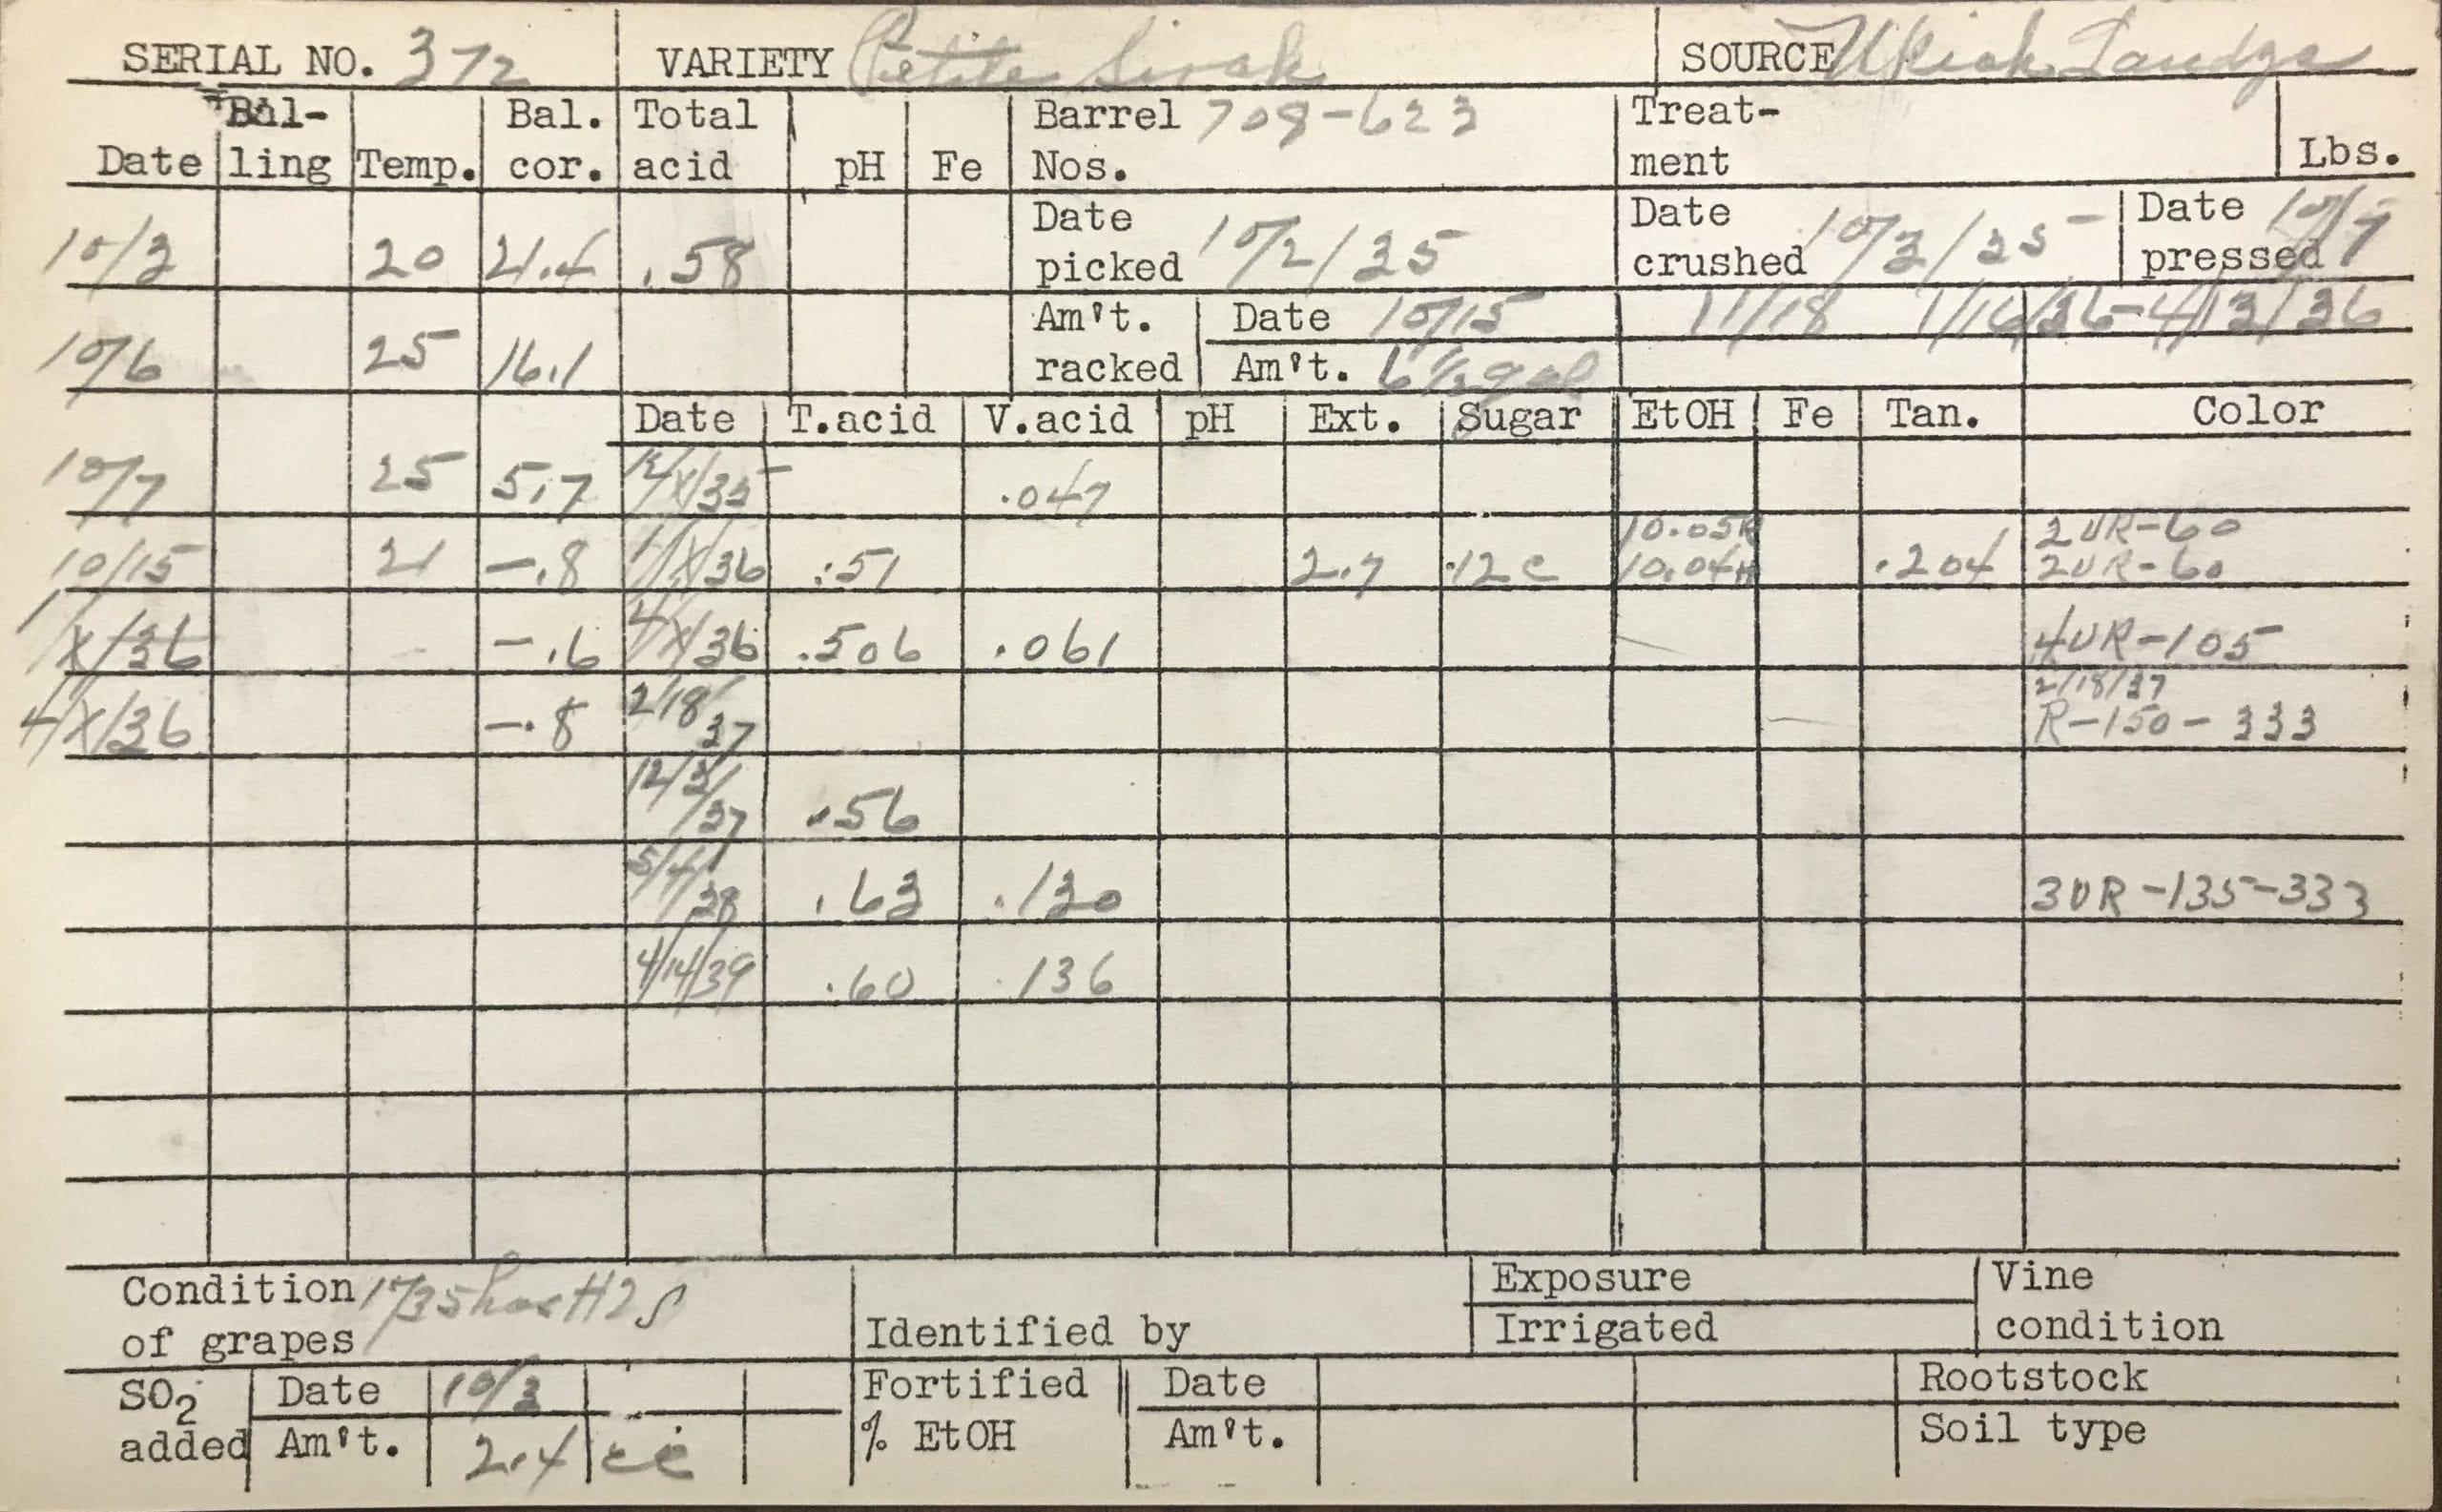 SERIAL NO. 372 VARIETY Petite Sirah SOURCE Ukiah
Date Bal-ling Temp. Bal. cor. Total acid pH Fe Barrel Nos. 708-623 Treat-ment Lbs.
10/3 20 21.4 .58 Date picked 10/2/35 Date crushed 10/3/35 Date pressed 10/7
10/6 25 16.1 Am't. racked Date 10/15 11/18 1/16/36-4/13/36
Am't. 6 1/2 gal
Date T.acid V.acid pH Ext. Sugar EtOH Fe Tan. Color
10/7 25 5.7 12/X/35 .047
10.05R 2UR-60
10/15 21 -.8 1/X/36 .51 2.7 .12c 10.04H .204 2UR-60
1/X/36 -.6 4/X/36 .506 .061 4UR-105
2/18/37
4/X/36 -.8 2/18/37 R-150-333
12/2/37 .56
5/4/38 .63 .130 3UR-135-333
4/14/39 .60 .136
Condition of grapes 1735 has H2S Identified by Exposure Vine condition
Irrigated
SO2 added Date 10/3 Fortified % EtOH Date Rootstock
Am't. 2.4 cc Am't. Soil type